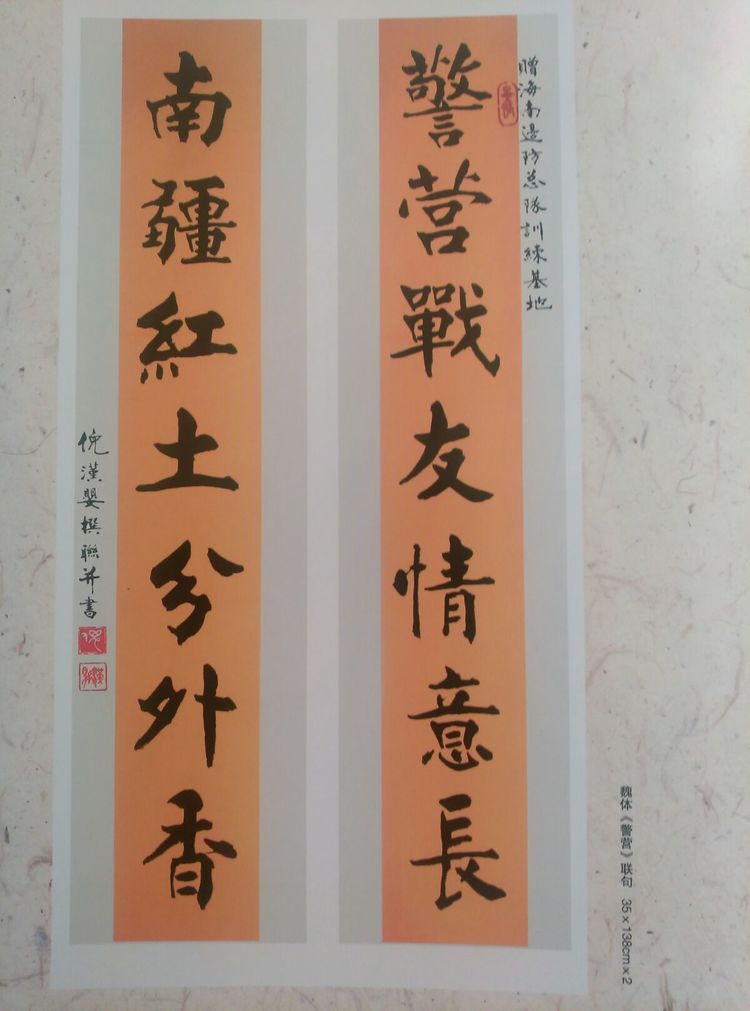 贈海南邊防总隊訓練基地
警营戰友情意長
南疆紅土分外香
倪漢嬰撰聯并書
魏体《警营》联句 35×138cm×2